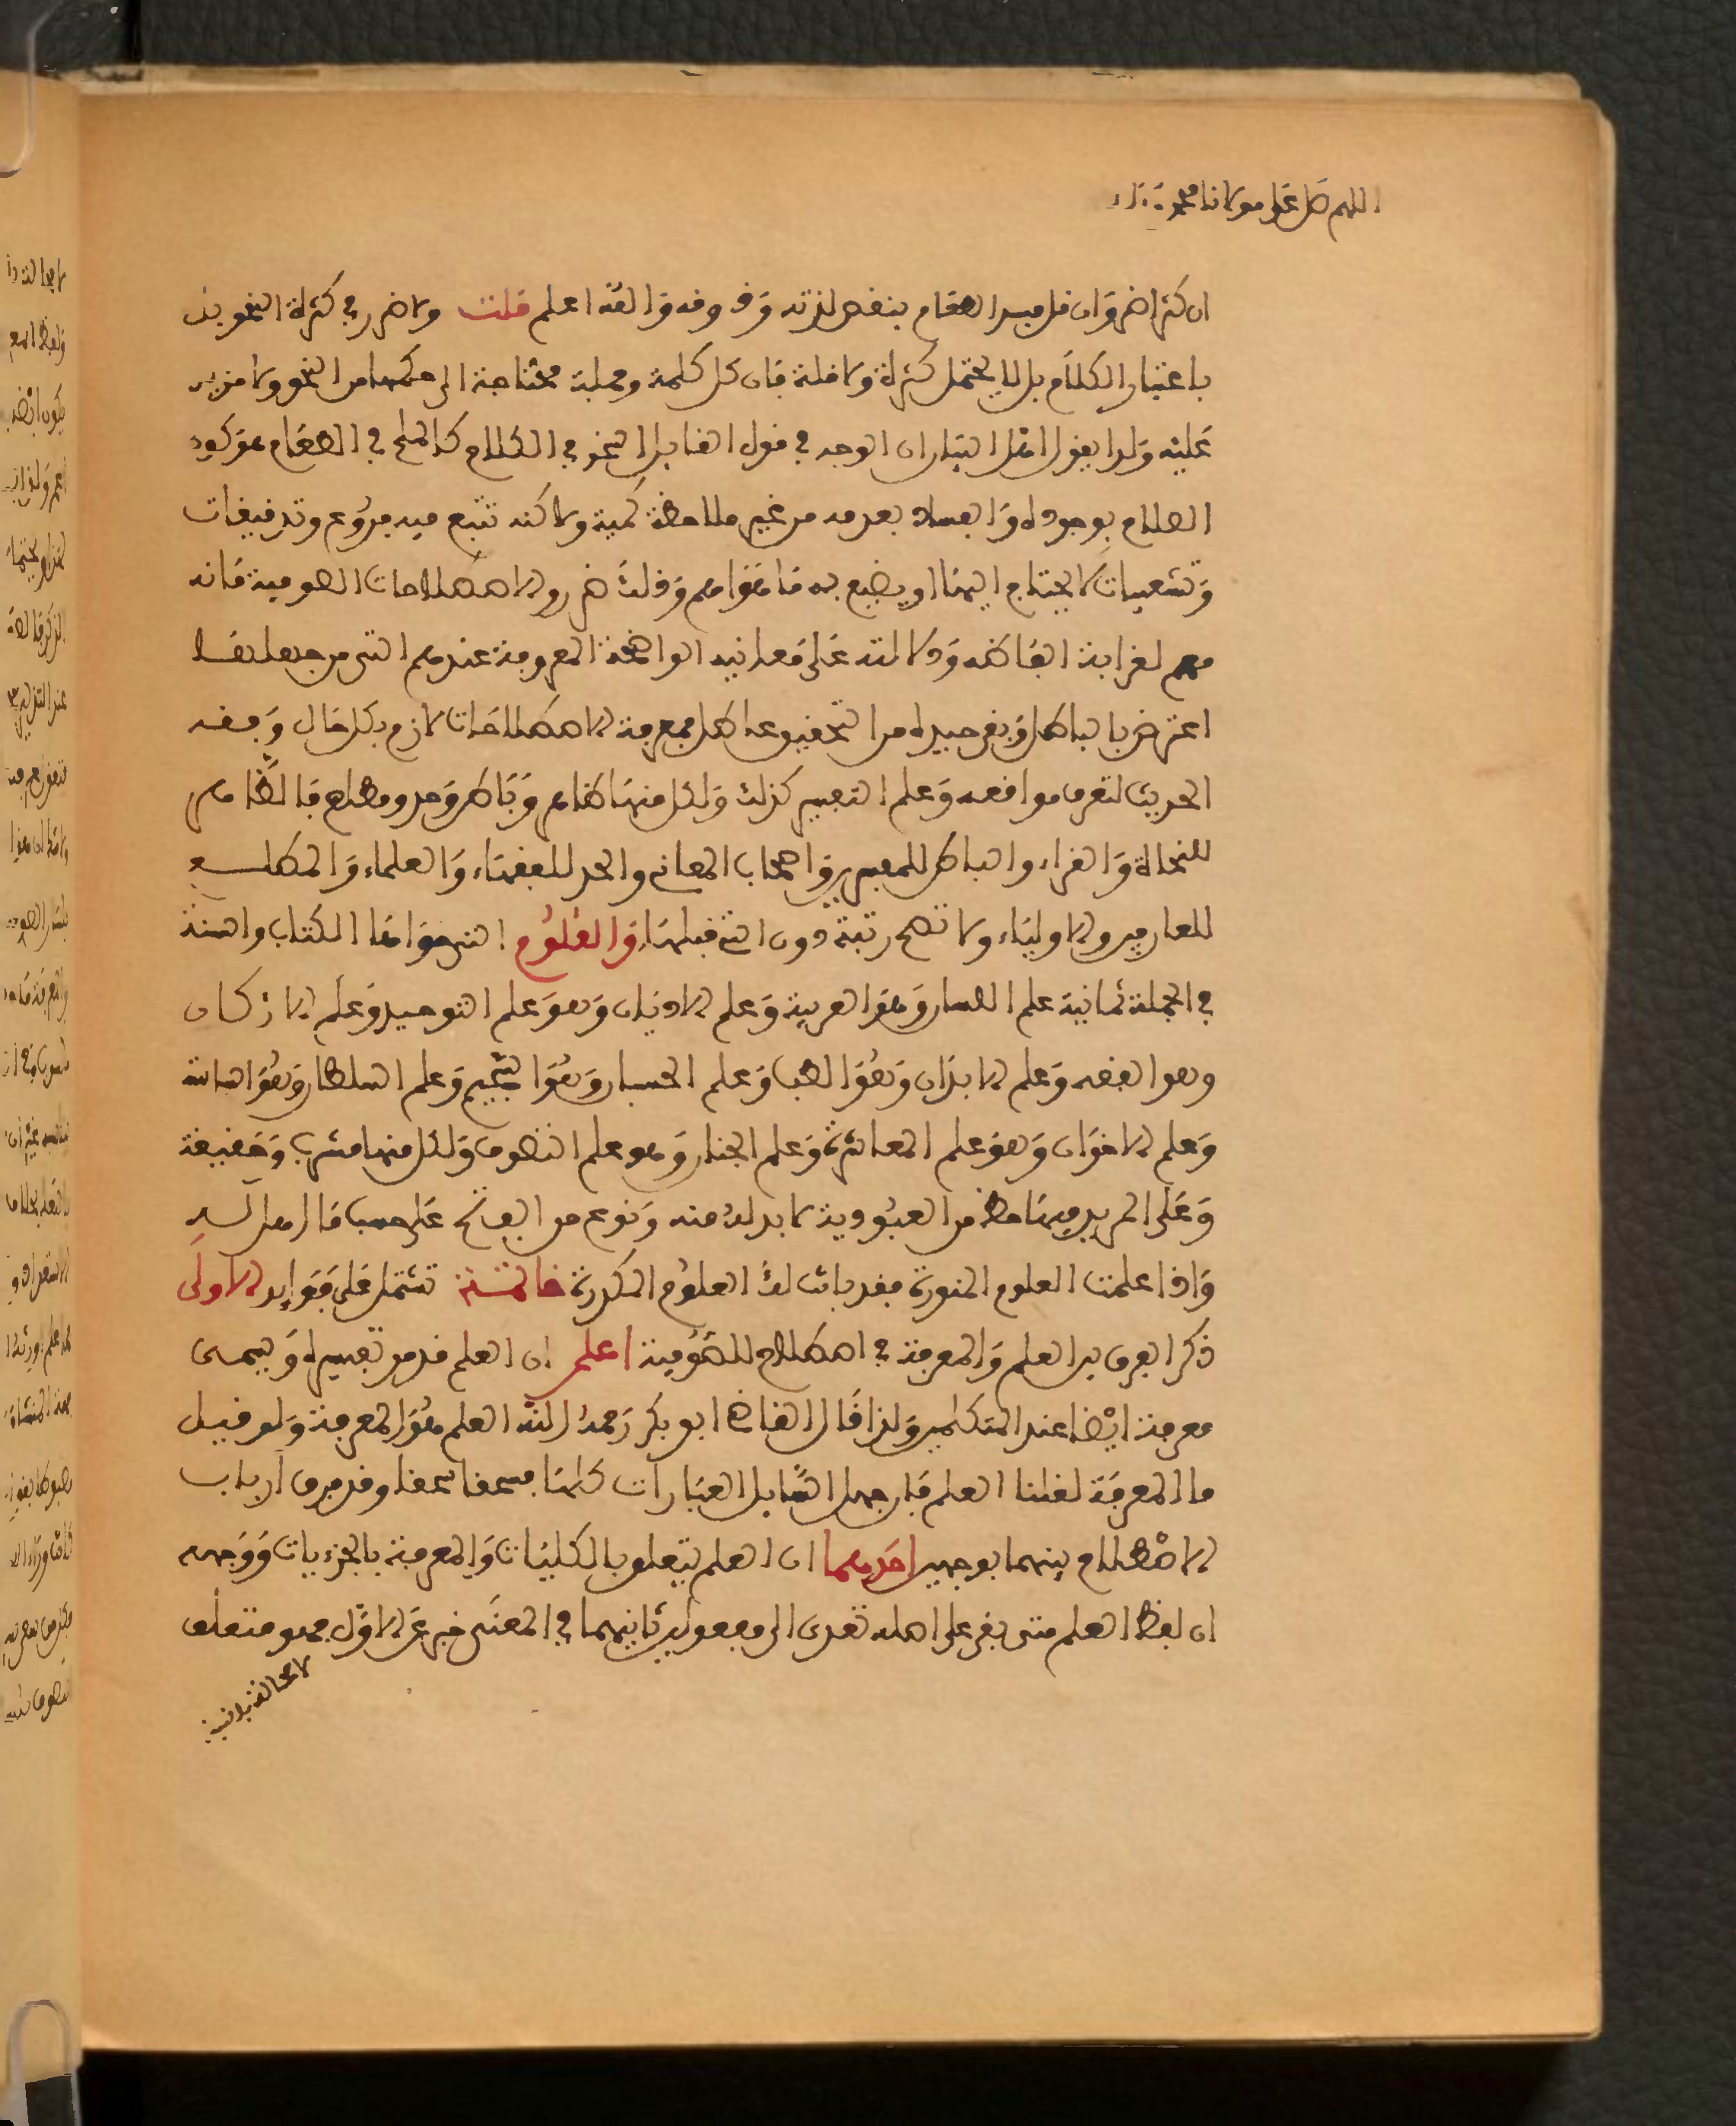 اللهم صل على مولانا محمد
ان كثر اضر وان قل فسد الطعام بنقص لذته وذوقه والله اعلم قلت ولا ضرر في كثرة النحو بل
باعتبار الكلام بل لا يحتمل كثرة ولا قلة فان كل كلمة وجملة محتاجة الى حكمها من النحو ولا مزيد
عليه ولذا يقول اهل البيان ان الوجه في قول القايل النحو في الكلام كالملح في الطعام هو كون
الصلاح بوجوده والفساد بعدمه من غير ملاحظة كمية ولاكنه تتبع فيه فروع وتدقيقات
وتشعيبات لا يحتاج اليها او يضيع به ما هو اهم وقلت ضرر والاصطلاحات الصوفية فانه
مهم لغرابة الفاظه ودلالته على معانيه الواضحة المعروفة عندهم التي من جهلها
اعترض بالباطل وبقي حيد له من التحقيق عاطل فمعرفة الاصطلاحات لازم بكل حال وفقه
الحديث لتعرف مواقعه وعلم التعبير كذلك ولكل منها ظاهر وباطن وحد ومطلع فالظاهر
للنحاة والقراء والباطن للمفسرين واصحاب المعاني والحد للفقهاء والعلماء والمطلع
للعارفين والاولياء ولا تصح رتبة دون التي قبلها والعلوم التي حواها الكتاب والسنة
في الجملة ثمانية علم اللسان وهو العربية وعلم الاديان وهو علم التوحيد وعلم الاركان
وهو الفقه وعلم الابدان وهو الطب وعلم الحسبان وهو التنجيم وعلم السلطان وهو السياسة
وعلم الاخوان وهو علم المعاشرة وعلم الجنان وهو علم التصوف ولكل منها مشرب وحقيقة
وعلى المريد فيها حظ من العبودية لا بد له منه ونوع من الفتح على حسب ما اهل له
واذا علمت العلوم المنورة فقد بانت لك العلوم المكدرة خاتمة تشتمل على فوايد الاولى
ذكر الفرق بين العلم والمعرفة في اصطلاح الصوفية اعلم ان العلم قد مر تفسيره ويسمى
معرفة ايضا عند المتكلمين ولذا قال القاضي ابو بكر رحمه الله العلم هو المعرفة ولو قيل
ما المعرفة لقلنا العلم فان جهل السايل العبارات كلها فسحقا سحقا وقد فرق ارباب
الاصطلاح بينهما بوجهين احدهما ان العلم يتعلق بالكليات والمعرفة بالجزءيات ووجهه
ان لفظ العلم متى بقي على اصله تعدى الى مفعولين ثانيهما في المعنى خبر عن الاول فهو متعلق
لا محالة